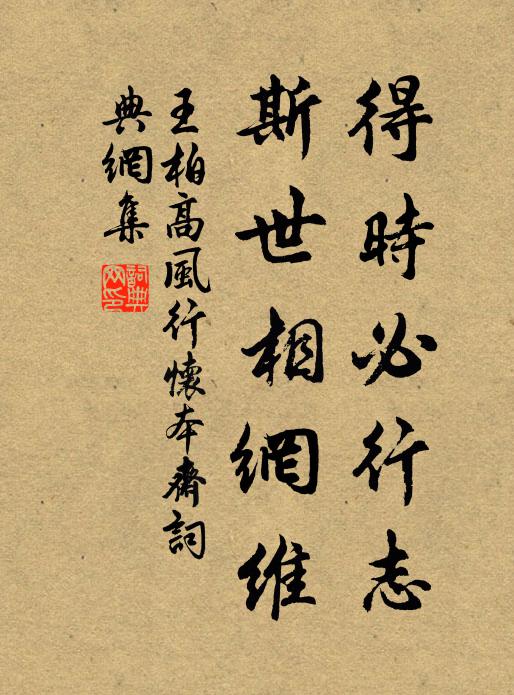 得時必行志
斯世相網維
王柏高風行懷本齋詞
典網集
詞典網印